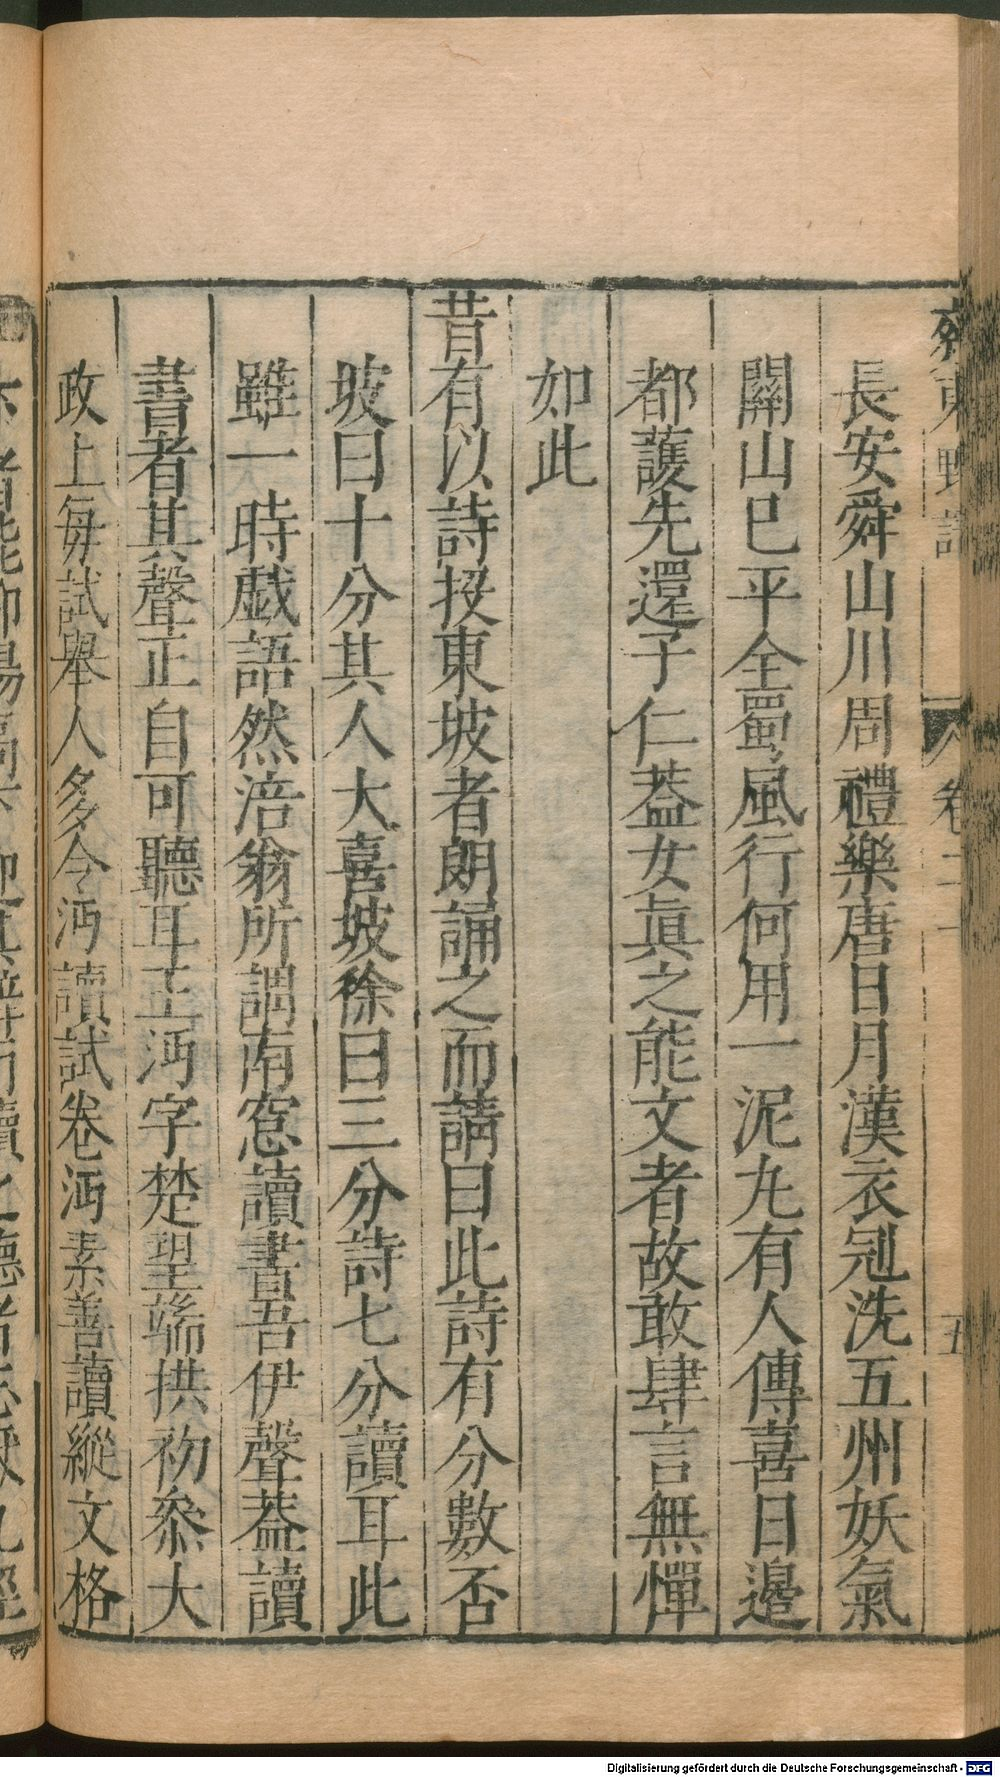 齊東野語
卷二
五
長安舜山川周禮樂唐日月漢衣冠洗五州妖氣
關山已平全蜀風行何用一泥丸有人傳喜日邊
都護先還子仁葢女眞之能文者故敢肆言無憚
如此
昔有以詩投東坡者朗誦之而請曰此詩有分數否
坡曰十分其人大喜坡徐曰三分詩七分讀耳此
雖一時戯語然涪翁所謂南窓讀書吾伊聲葢讀
書者其聲正自可聽耳王沔字楚望端拱初叅大
政上每試舉人多令沔讀試卷沔素善讀縱文格
Digitalisierung gefördert durch die Deutsche Forschungsgemeinschaft - DFG